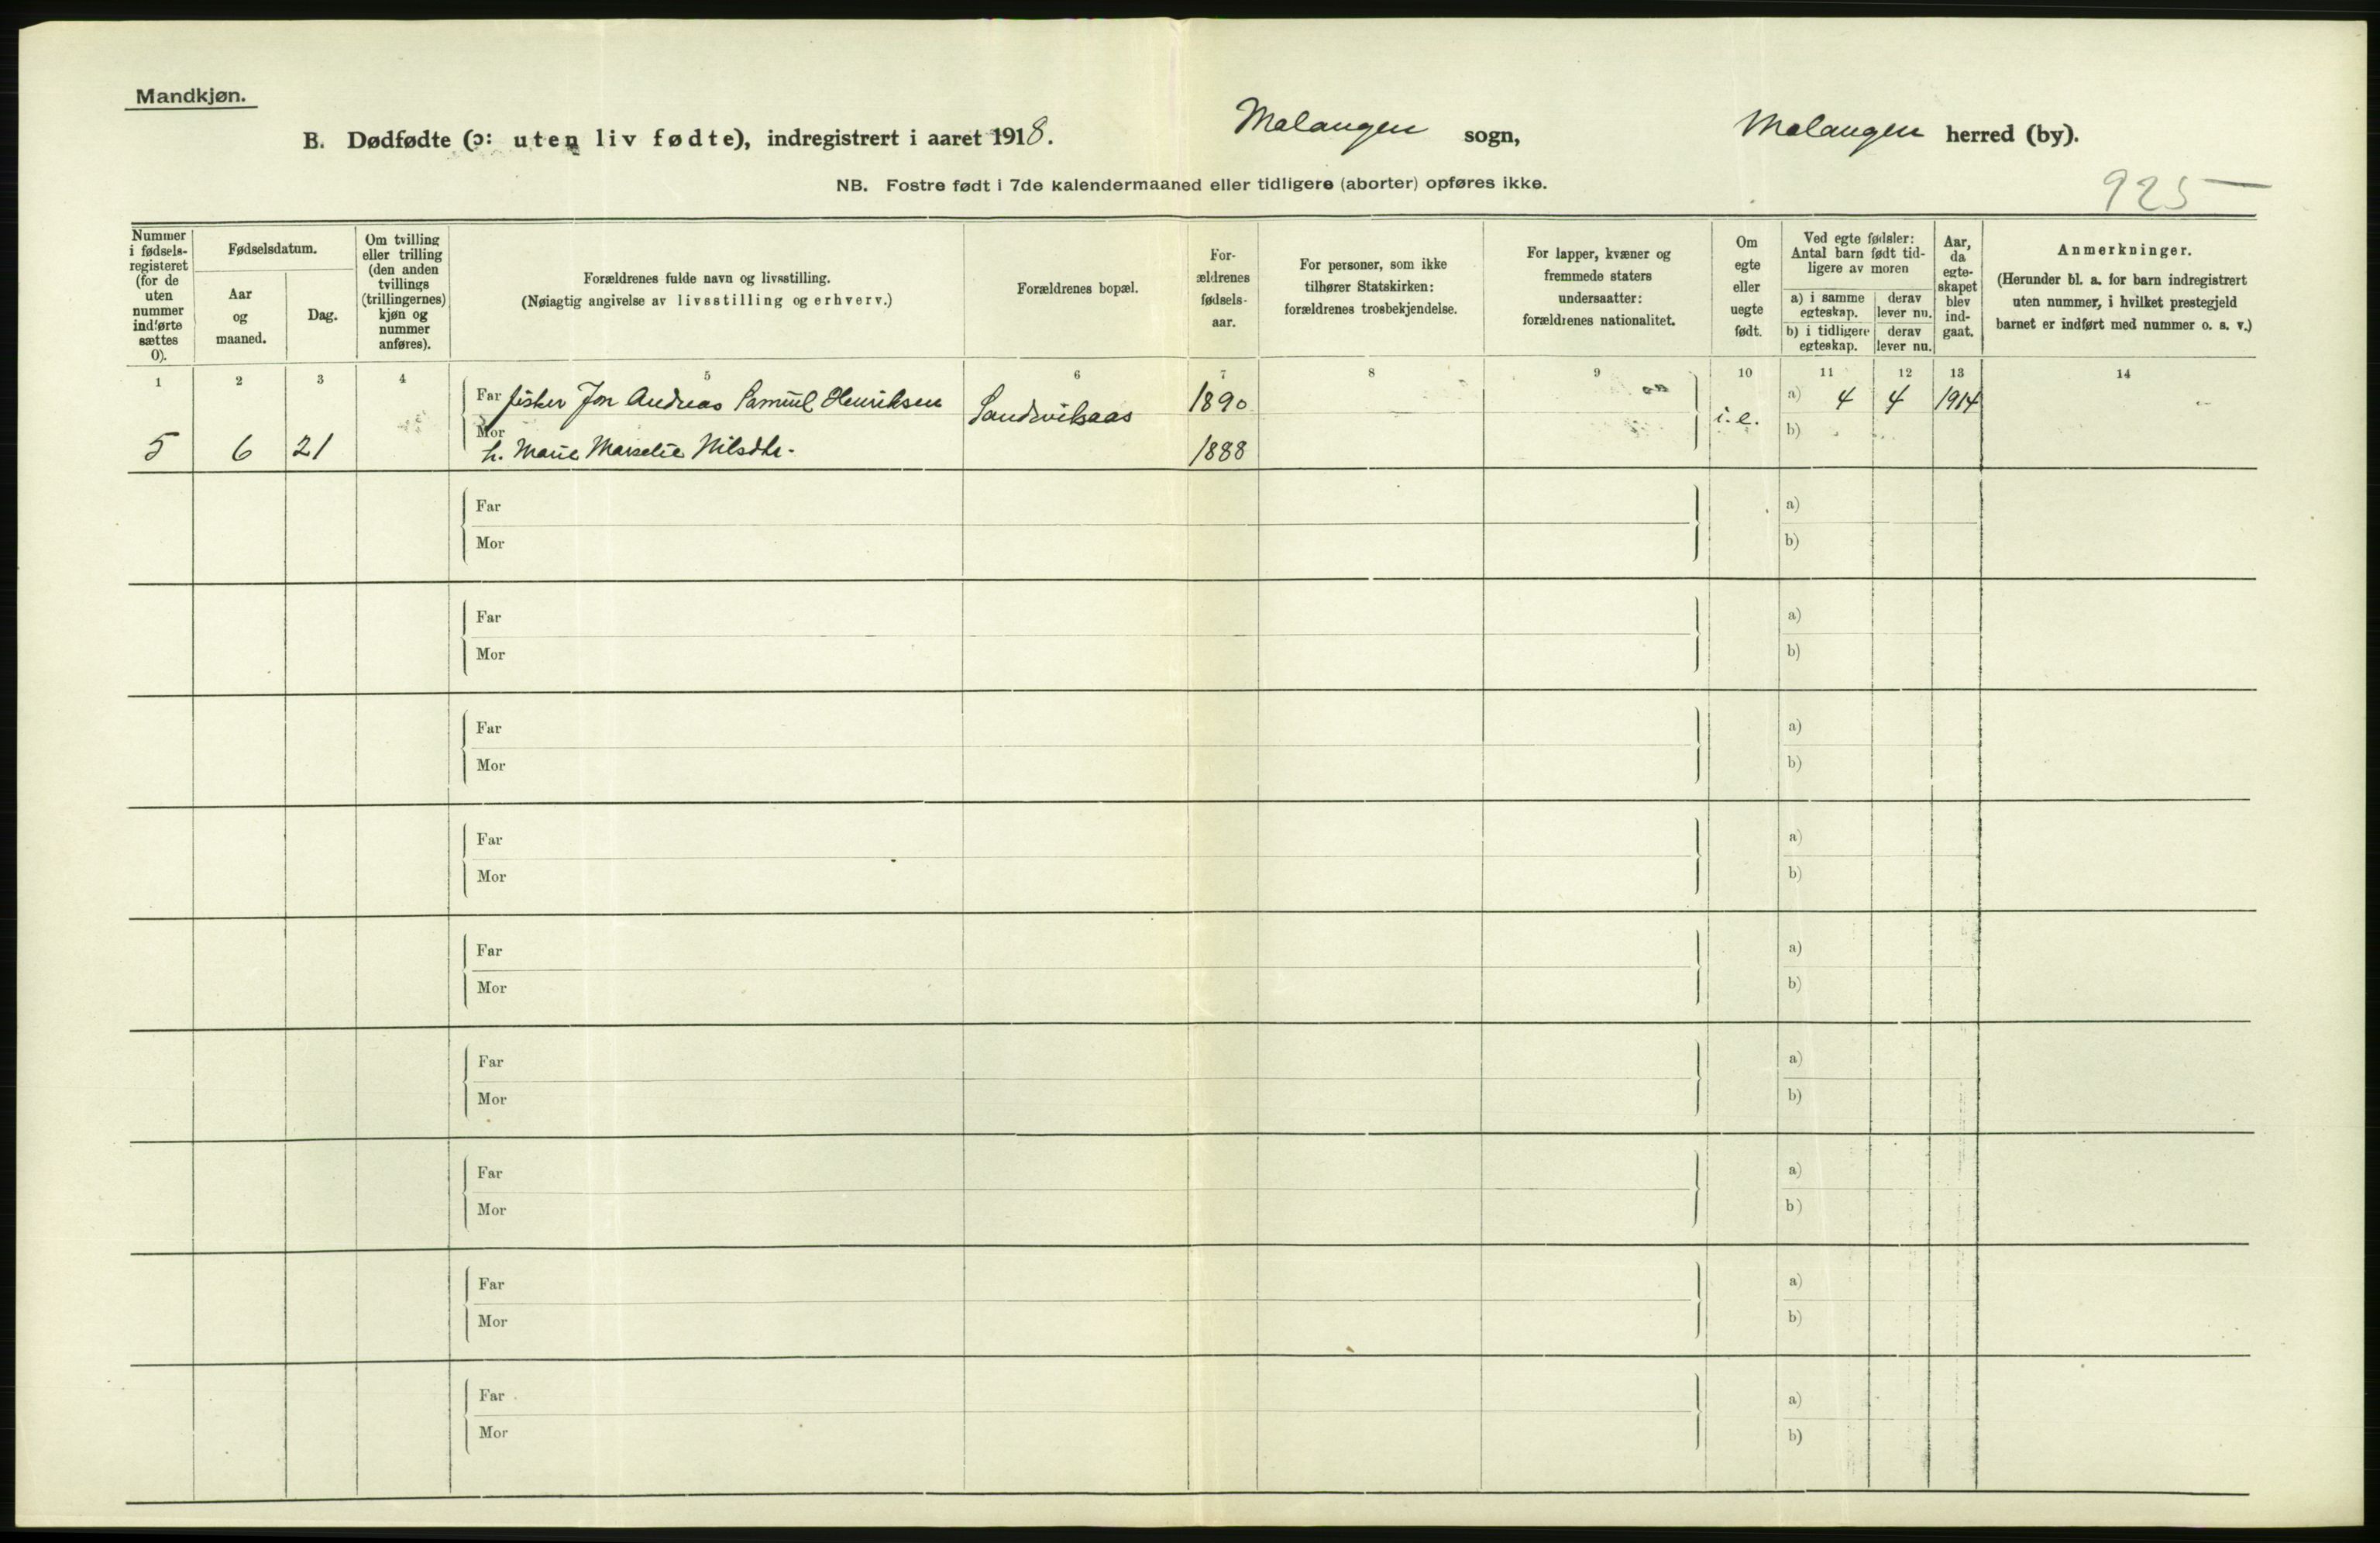 Mandkjøn.
B. Dødfødte (ɔ: uten liv fødte), indregistrert i aaret 1918. Malangen sogn, Malangen herred (by).
NB. Fostre født i 7de kalendermaaned eller tidligere (aborter) opføres ikke.
925
Nummer
i fødsels-
registeret
(for de
uten
nummer
indførte
sættes
0).
Fødselsdatum.
Aar
og
maaned.
Dag.
Om tvilling
eller trilling
(den anden
tvillings
(trillingernes)
kjøn og
nummer
anføres).
Forældrenes fulde navn og livsstilling.
(Nøiagtig angivelse av livsstilling og erhverv.)
Forældrenes bopæl.
For-
ældrenes
fødsels-
aar.
For personer, som ikke
tilhører Statskirken:
forældrenes trosbekjendelse.
For lapper, kvæner og
fremmede staters
undersaatter:
forældrenes nationalitet.
Om
egte
eller
uegte
født.
Ved egte fødsler:
Antal barn født tid-
ligere av moren
a) i samme
egteskap.
derav
lever nu.
b) i tidligere
egteskap.
derav
lever nu.
Aar,
da
egte-
skapet
blev
ind-
gaat.
Anmerkninger.
(Herunder bl. a. for barn indregistrert
uten nummer, i hvilket prestegjeld
barnet er indført med nummer o. s. v.)
1 2 3 4 5 6 7 8 9 10 11 12 13 14
Far fisker Jon Andreas Samuel Henriksen 1890 a) 4 4 1914
i.e.
5 6 21 Mor h. Marie Marselie Nilsdtr. 1888 b)
Far a)
Mor b)
Far a)
Mor b)
Far a)
Mor b)
Far a)
Mor b)
Far a)
Mor b)
Far a)
Mor b)
Far a)
Mor b)
Far a)
Mor b)
Far a)
Mor b)